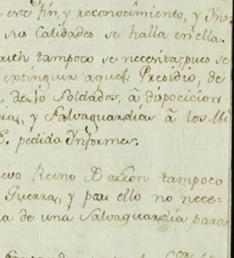 este fin, y reconocimiento, y Ins
sus Calidades se halla en ella.
tampoco se necesita, pues se
extinguir aquel Presidio, de
de 10 Soldados, â disposicion
y Salvaguardias â los Mi
pedido Informes.
Reino D Leon tampoco
Guerra, y para ello no nece-
a de una Salvaguardia para